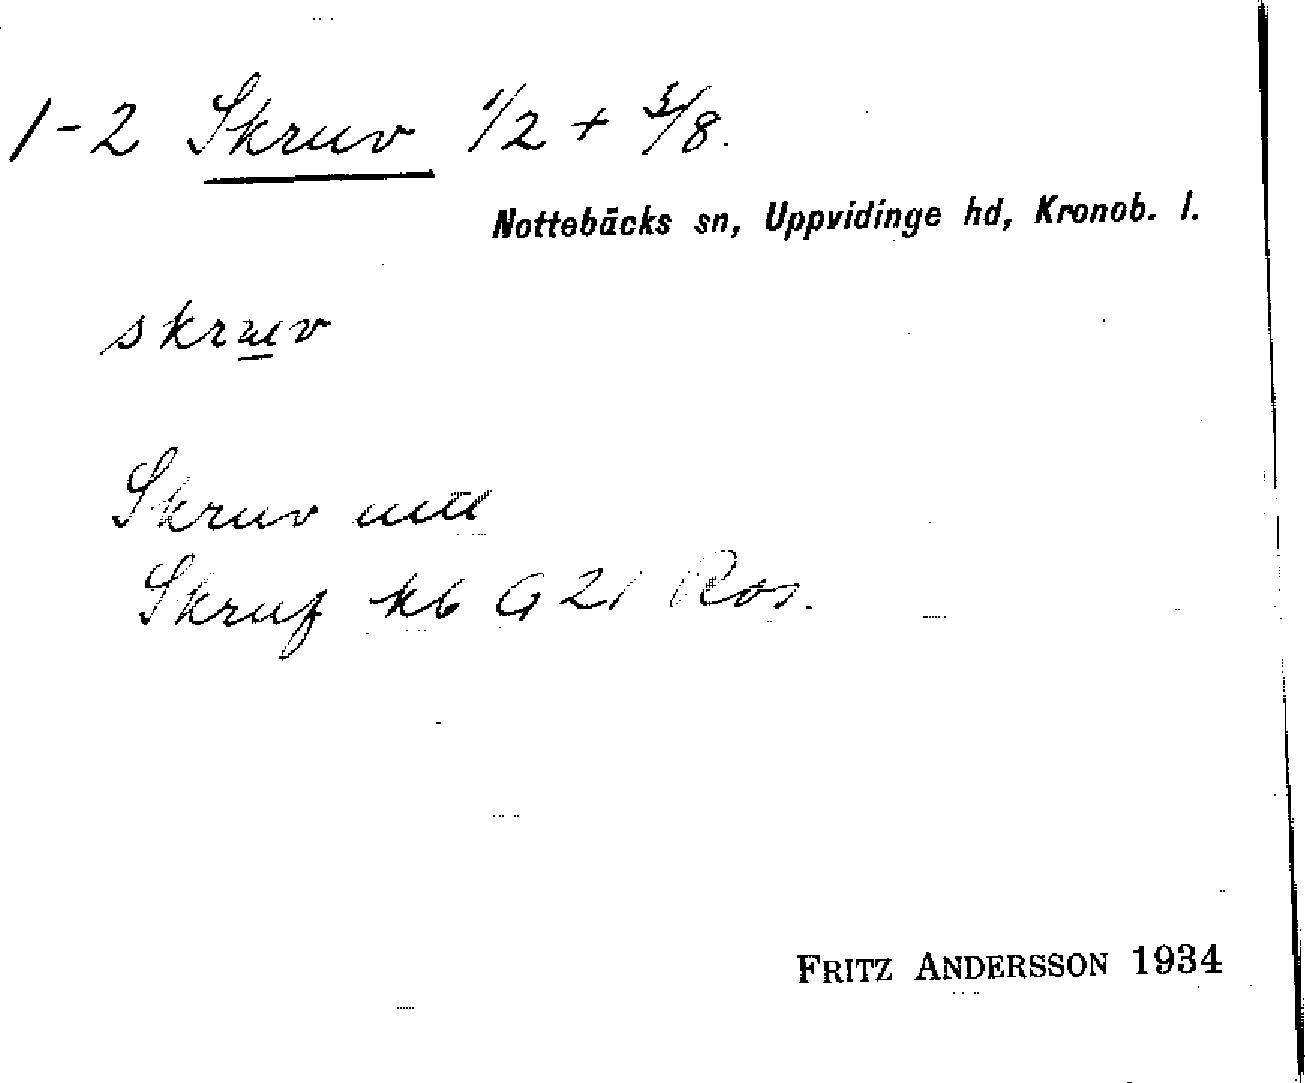 1-2 Skruv 1/2 + 3/8.
Nottebäcks sn, Uppvidinge hd, Kronob. l.
skruv
Skruv
Skruf kb G 21 Ros.
FRITZ ANDERSSON 1934